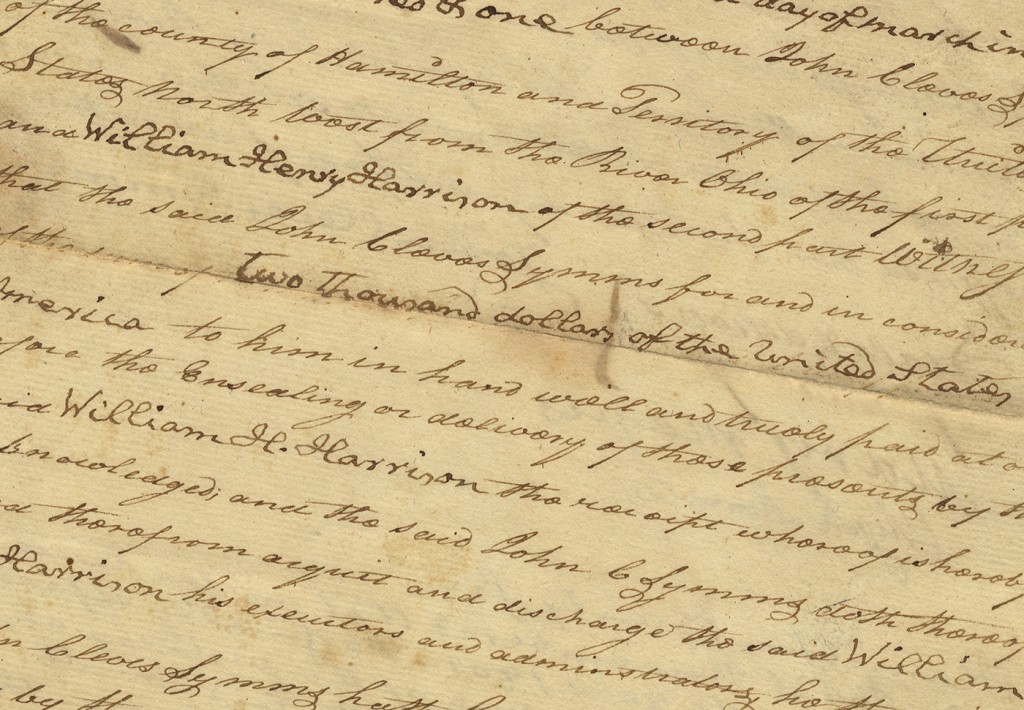 day of march in
th one between John Cleves Sy
of the county of Hamilton and Territory of the Unite
States North West from the River Ohio of the first p
and William Henry Harrison of the second part Witness
that the said John Cleves Symms for and in consider
of two thousand dollars of the United States
America to him in hand well and truely paid at o
fore the Ensealing or delivery of these presents by th
aid William H. Harrison the receipt whereof is hereb
knowledged; and the said John C Symms doth there
d therefrom acquit and discharge the said William
Harrison his executors and adminstrators, he th
n Cleves Symms hath
by th